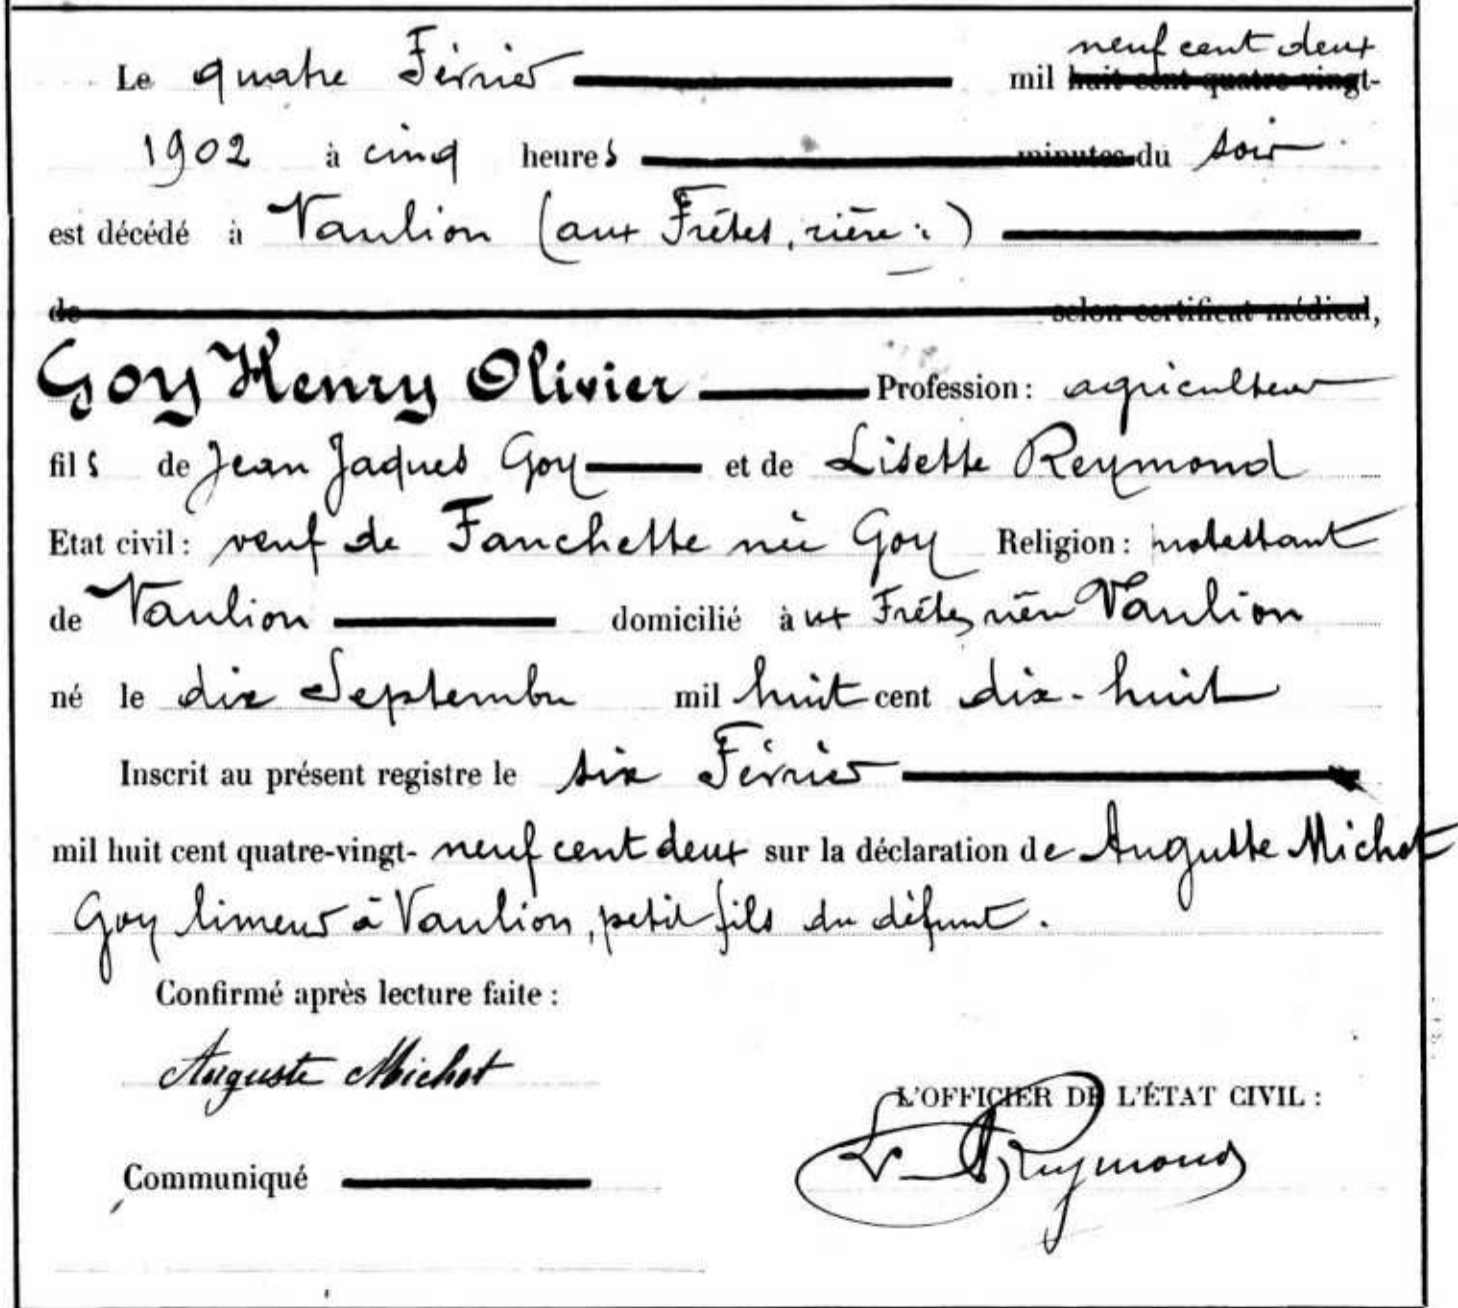 neuf cent deux
Le quatre Février mil huit cent quatre-vingt-
1902 à cinq heures minutes du soir
est décédé à Vaulion (aux Frêtes, rière:)
de selon certificat médical,
Goy Henry Olivier Profession: agriculteur
fils de Jean Jaques Goy et de Lisette Reymond
Etat civil: veuf de Fanchette née Goy Religion: protestant
de Vaulion domicilié àux Frêtes, rière Vaulion
né le dix Septembre mil huit cent dix-huit
Inscrit au présent registre le six Février
mil huit cent quatre-vingt- neuf cent deux sur la déclaration de Auguste Michot
Goy limeur à Vaulion, petit fils du défunt.
Confirmé après lecture faite:
Auguste Michot
L'OFFICIER DE L'ÉTAT CIVIL:
L. Reymond
Communiqué